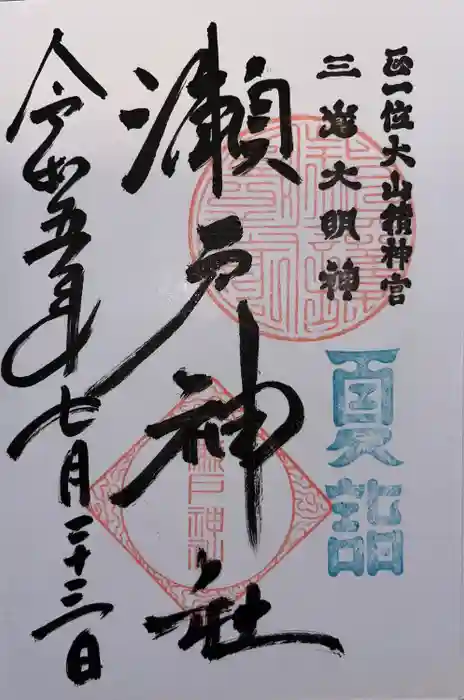 正一位大山積神宮
三嶌大明神
夏詣
瀨戸神社
令和五年七月二十三日